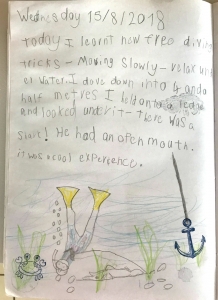 Wednesday 15/8/2018
Today I learnt new free diving
tricks - Moving slowly - relax und
er water. I dove down into 4 and a
half metres I held onto a ledge
and looked under it - there was a
! He had an open mouth.
it was a cool experience.